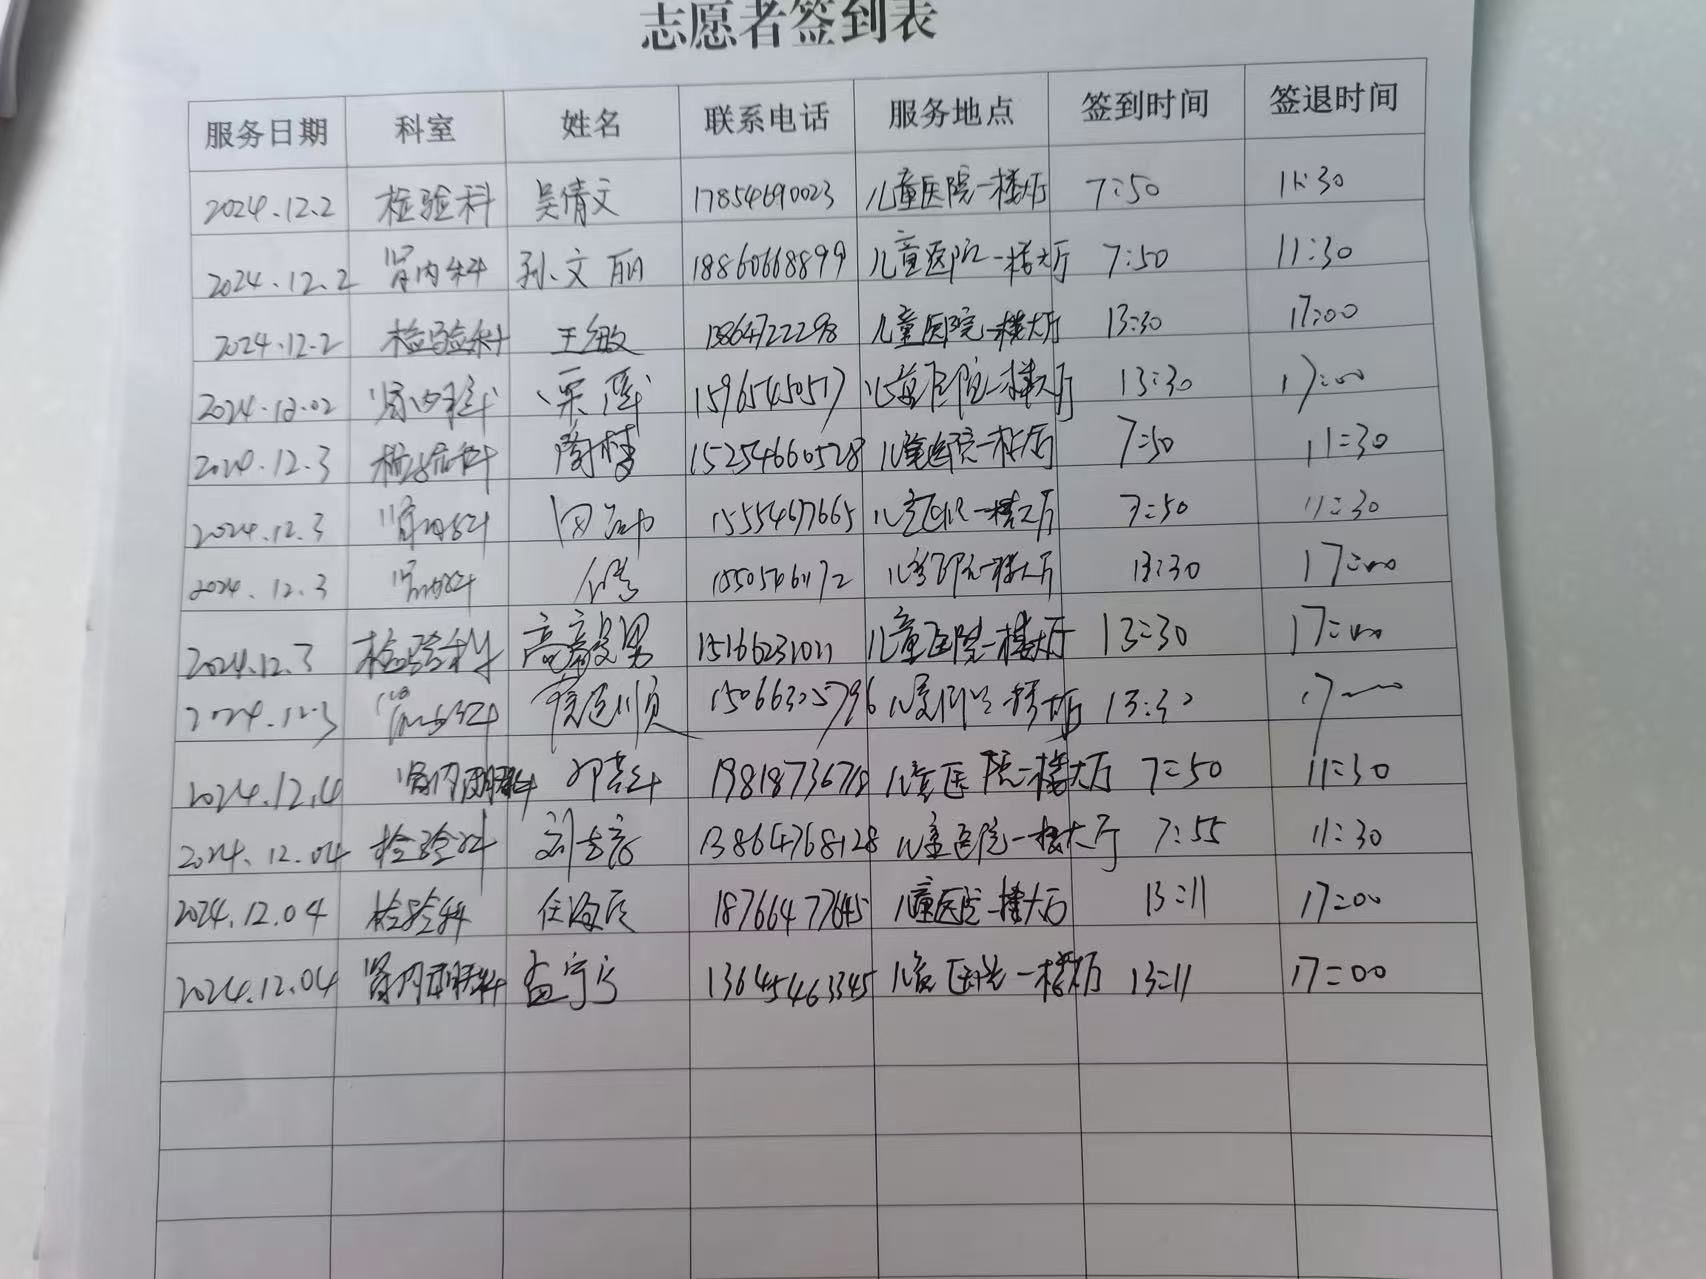 志愿者签到表
服务日期 科室 姓名 联系电话 服务地点 签到时间 签退时间
2024.12.2 检验科 吴倩文 17854690023 儿童医院一楼大厅 7:50 11:30
2024.12.2 肾内科 孙文丽 18860668899 儿童医院一楼大厅 7:50 11:30
2024.12.2 检验科 王敏 13864722298 儿童医院一楼大厅 13:30 17:00
2024.12.02 肾内科 栗莲 15965450517 儿童医院一楼大厅 13:30 17:00
2024.12.3 检验科 15254660528 儿童医院一楼大厅 7:50 11:30
2024.12.3 肾内科 15554677665 儿童医院一楼大厅 7:50 11:30
2024.12.3 肾内科 儿童医院一楼大厅 13:30 17:00
2024.12.3 检验科 高毅男 儿童医院一楼大厅 13:30 17:00
2024.12.3 肾内科 15066325796 一楼大厅 13:30 17
2024.12.4 肾内 科 儿童医院一楼大厅 7:50 11:30
2024.12.04 检验科 13864768128 儿童医院一楼大厅 7:55 11:30
2024.12.04 检验科 18766477645 儿童医院一楼大厅 13:11 17:00
2024.12.04 肾内 科 孟宁宁 13645463345 儿童医院一楼大厅 13:11 17:00